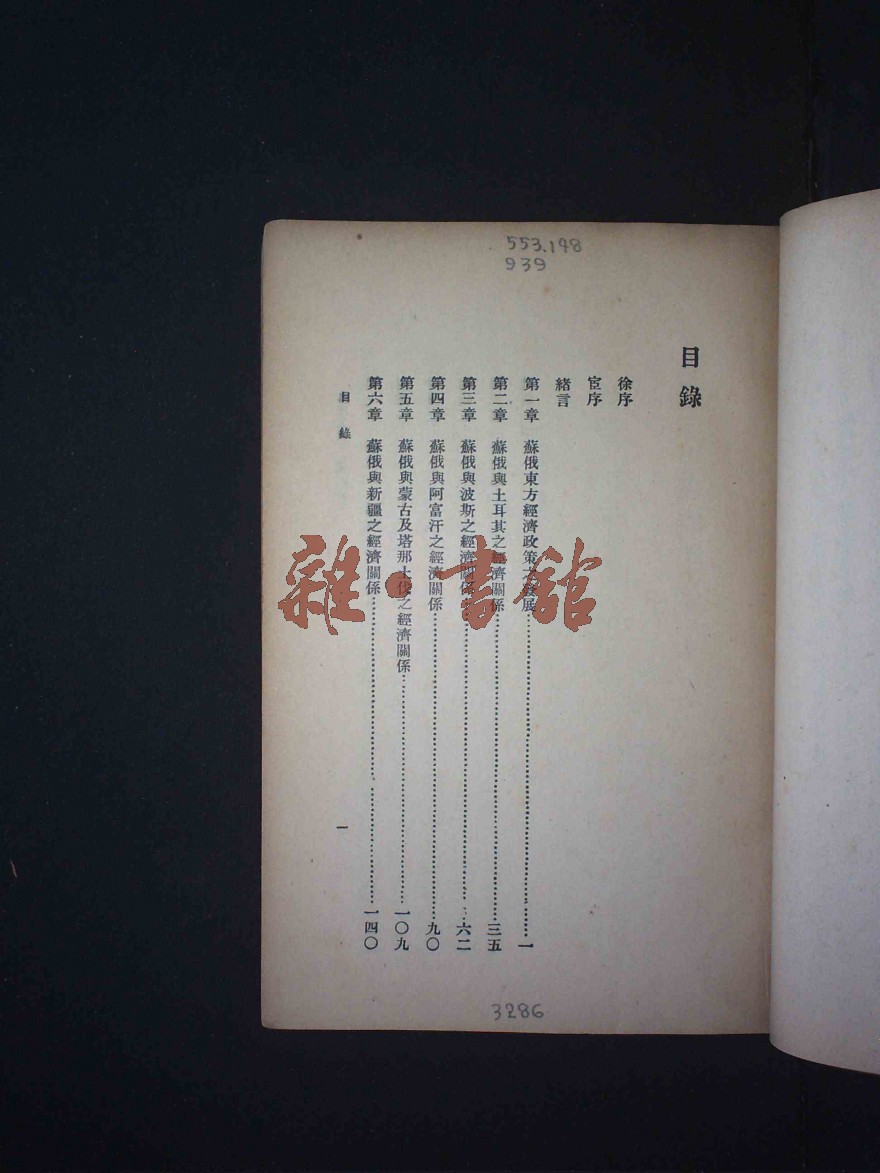 553.198
939
目錄
徐序
宦序
緒言
第一章 蘇俄東方經濟政策之發展……一
第二章 蘇俄與土耳其之經濟關係……三五
第三章 蘇俄與波斯之經濟關係……六二
第四章 蘇俄與阿富汗之經濟關係……九〇
第五章 蘇俄與蒙古及塔那土伐之經濟關係……一〇九
第六章 蘇俄與新疆之經濟關係……一四〇
目錄
一
3286
雜·書館